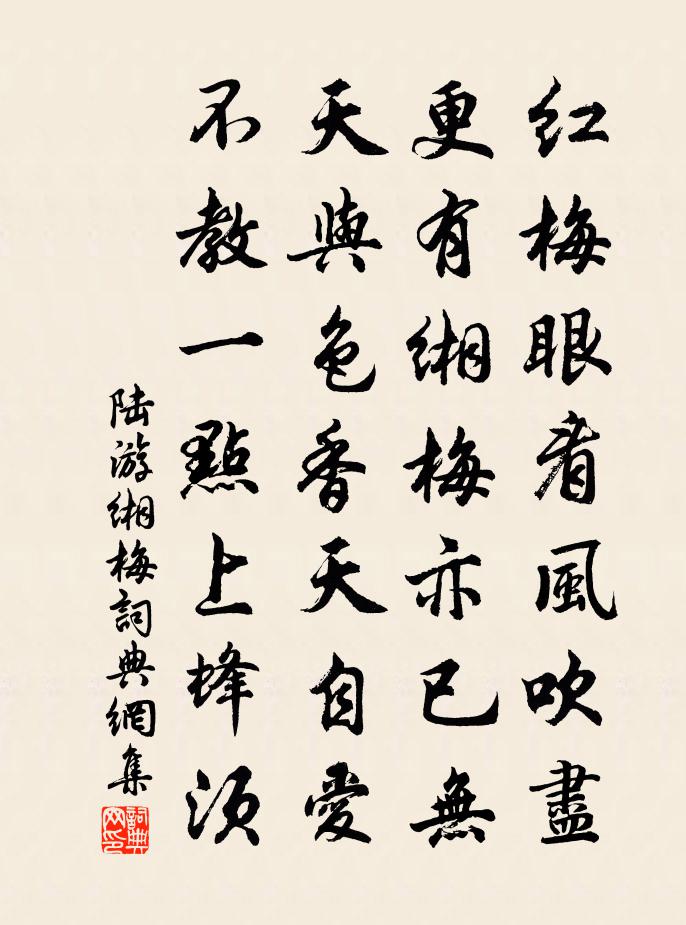 紅梅眼看風吹盡
更有緗梅亦已無
天與色香天自愛
不教一點上蜂須
陸游緗梅詞典網集
詞典网印